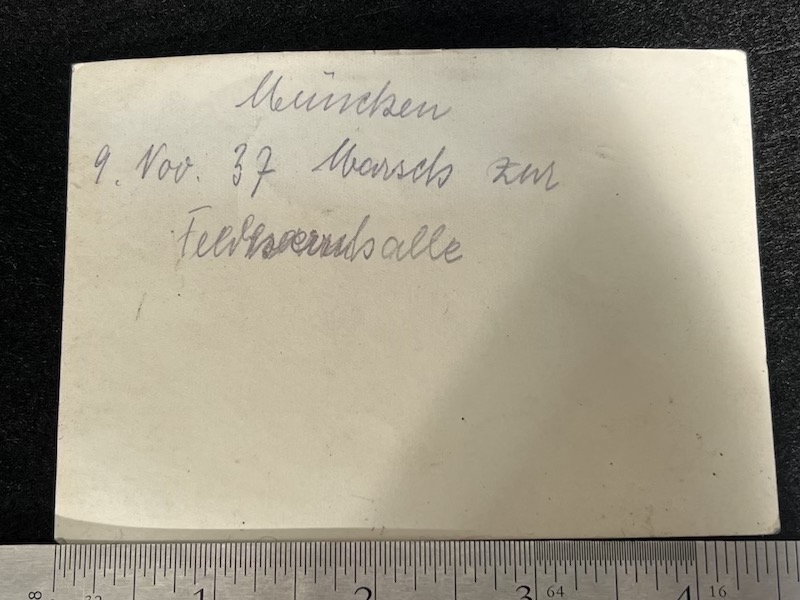 München
9. Nov. 37 Marsch zur
Feldherrnhalle
8 32 1 2 3 64 4 16